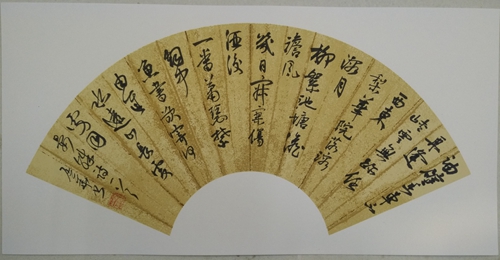 油壁香車不
再逢
峽雲無跡任
西東
梨華院落溶
溶月
柳絮池塘澹
澹風
幾日寂寥傷
酒後
一番蕭瑟禁
煙中
魚書欲寄何
由達
水遠山長處
處同